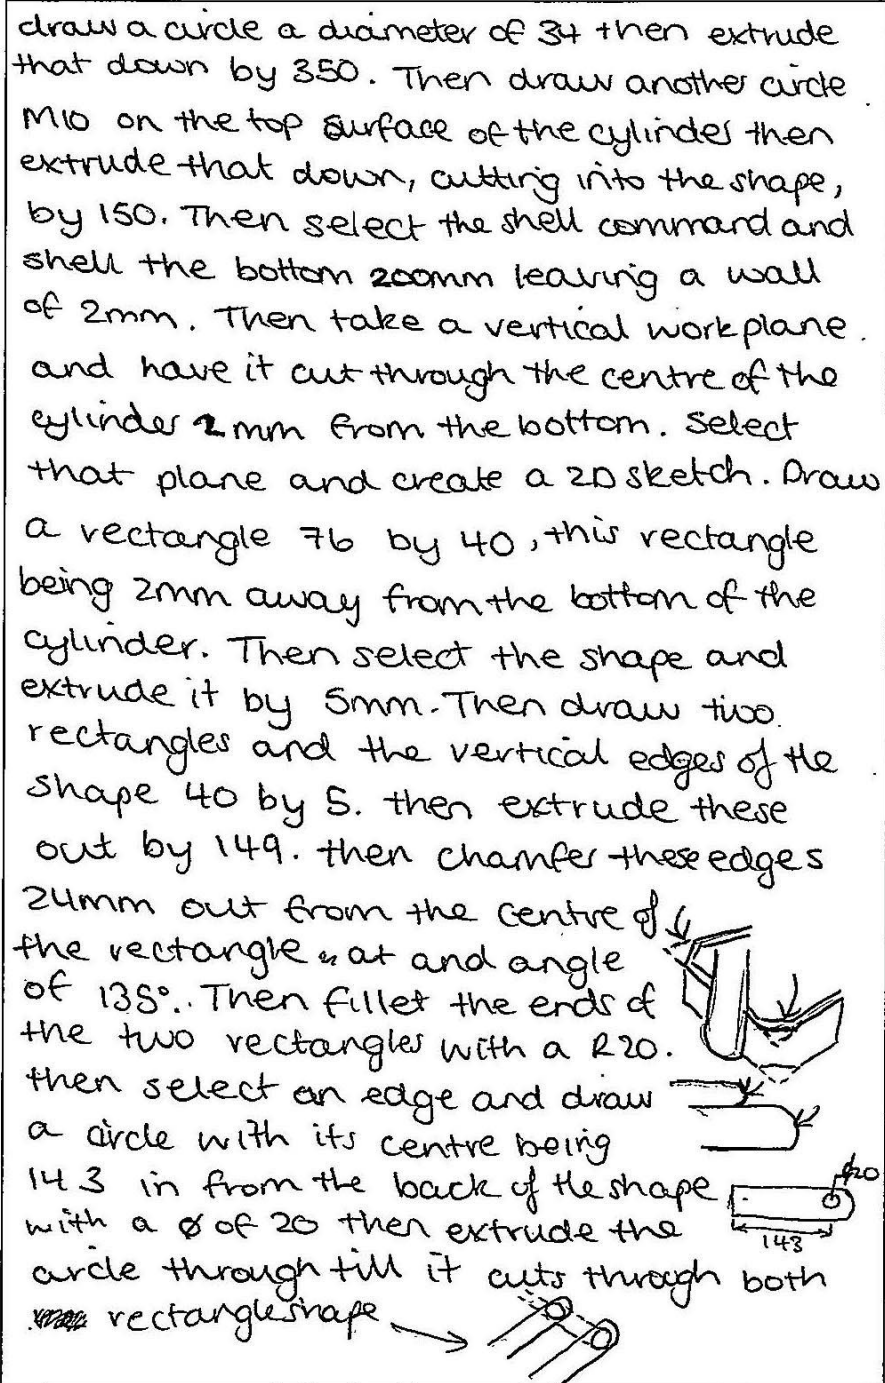 draw a circle a diameter of 34 then extrude
that down by 350. Then draw another circle
M10 on the top surface of the cylinder then
extrude that down, cutting into the shape,
by 150. Then select the shell command and
shell the bottom 200mm leaving a wall
of 2mm. Then take a vertical work plane.
and have it cut through the centre of the
cylinder 2mm from the bottom. Select
that plane and create a 2D sketch. Draw
a rectangle 76 by 40, this rectangle
being 2mm away from the bottom of the
cylinder. Then select the shape and
extrude it by 5mm. Then draw two
rectangles and the vertical edges of the
shape 40 by 5. then extrude these
out by 149. then chamfer these edges
24mm out from the centre of
the rectangle at and angle
of 135°. Then fillet the ends of
the two rectangles with a R20.
then select an edge and draw
a circle with its centre being
143 in from the back of the shape
ϕ20
with a ø of 20 then extrude the
143
circle through till it cuts through both
rectangle shape